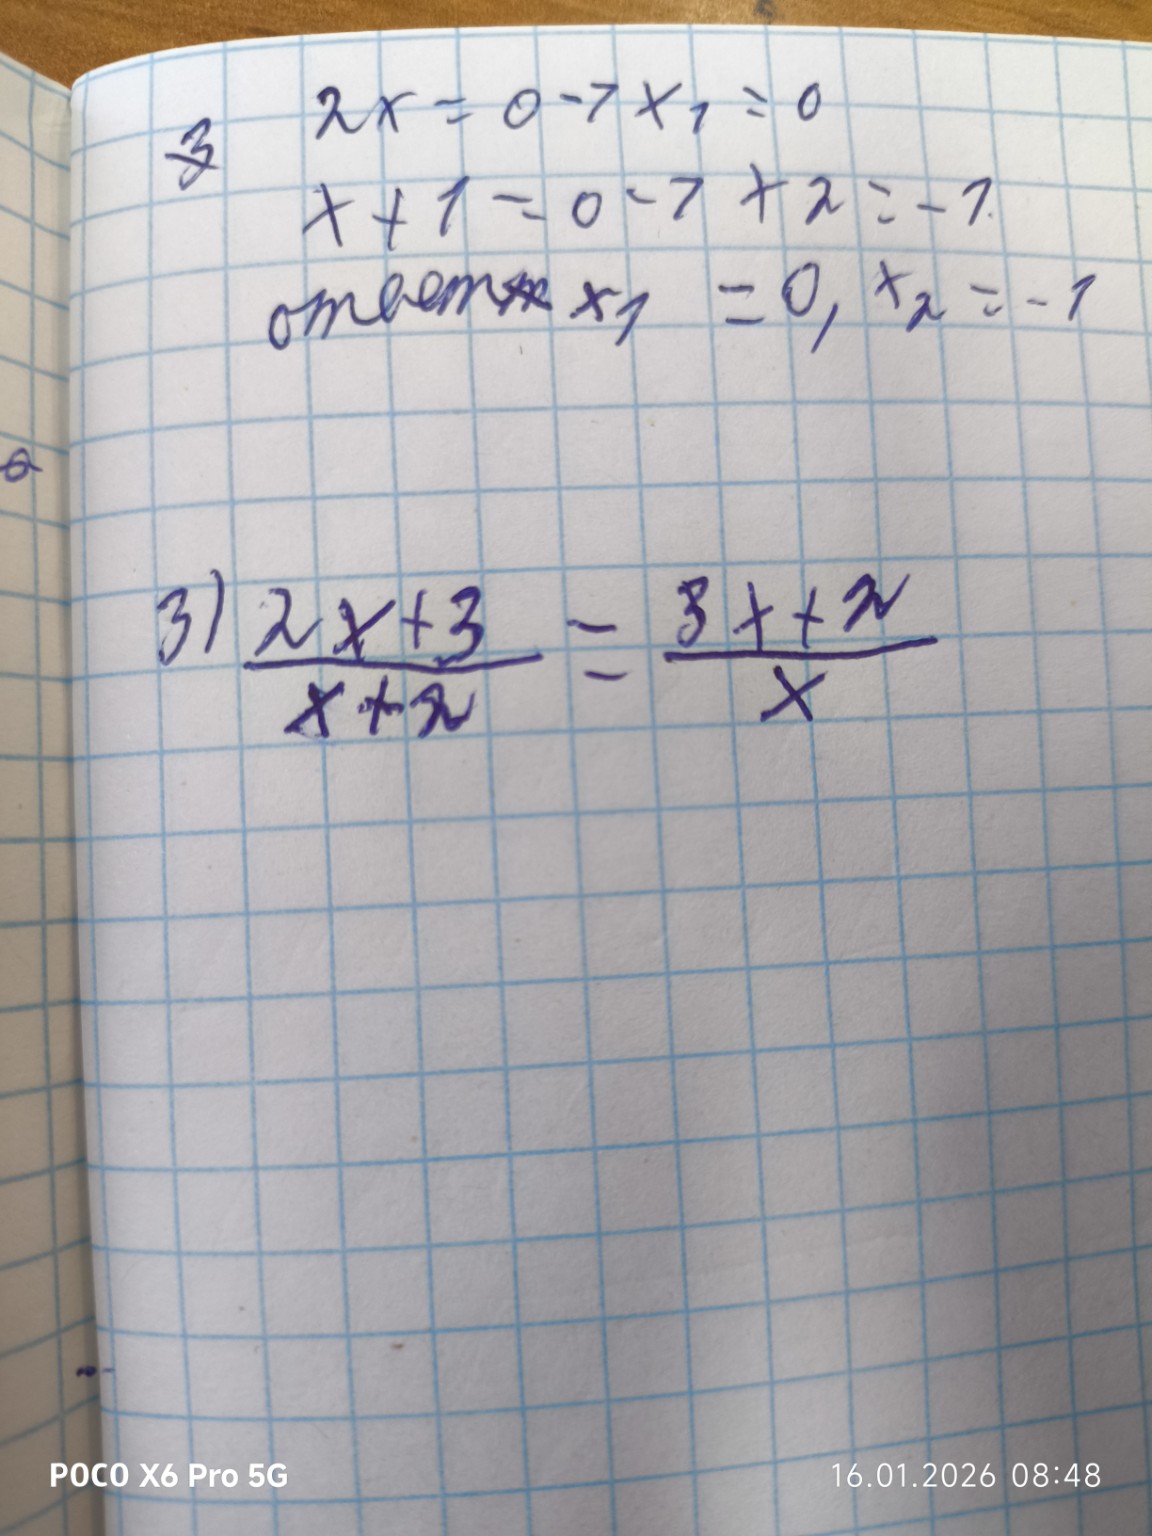 3 2x = 0 -7 x1 = 0
x + 1 = 0 -7 x2 = -1
ответ x1 = 0, x2 = -1
3) 2x+3 = 3x+2
x+2 x
POCO X6 Pro 5G
16.01.2026 08:48